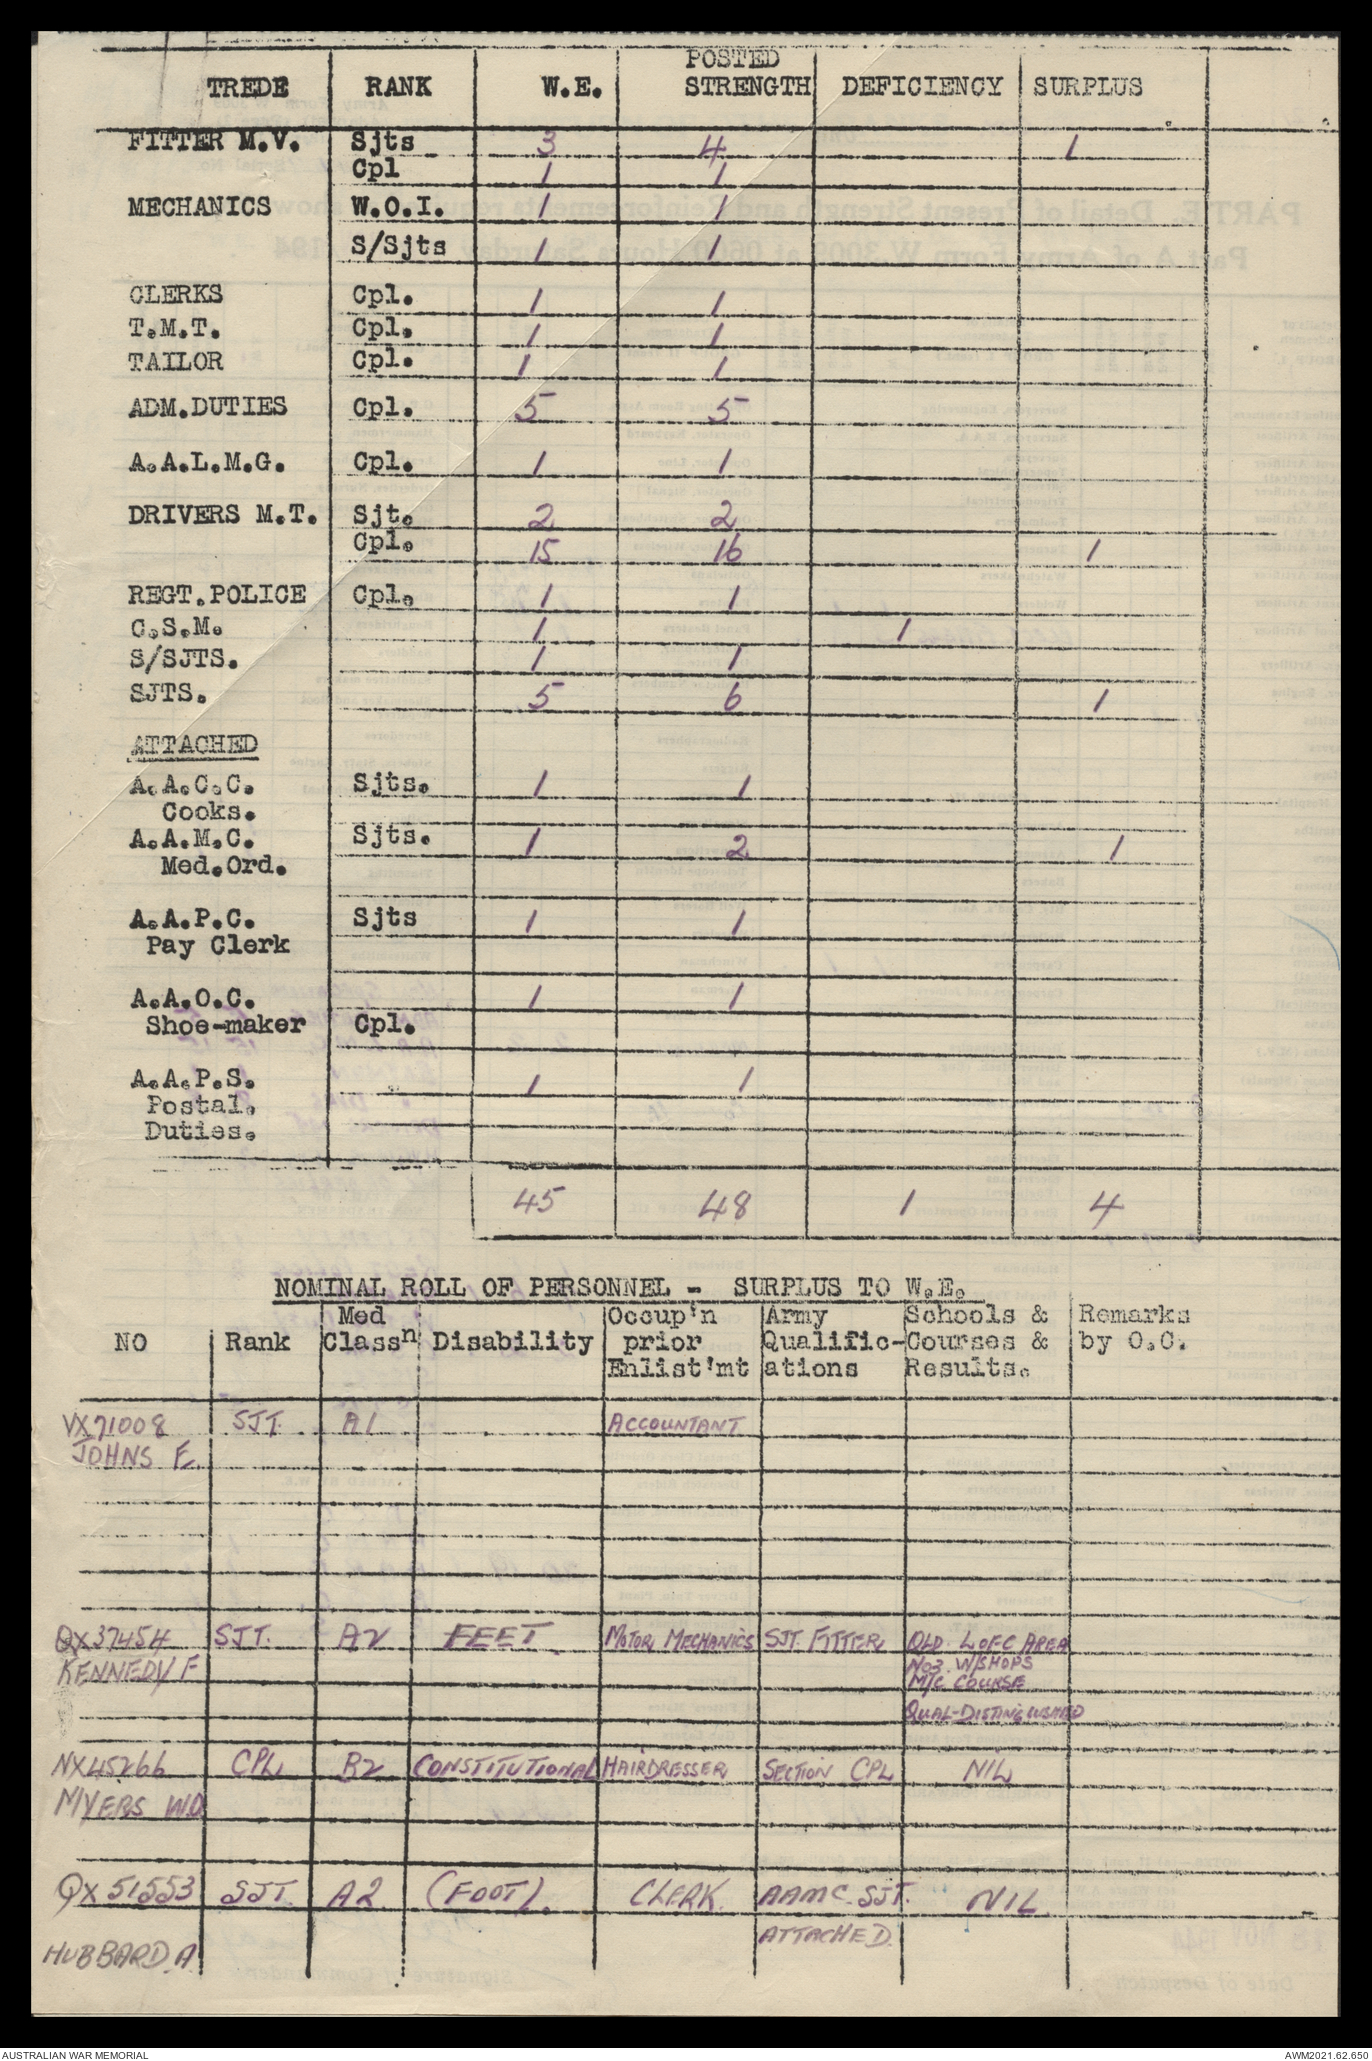 TREDE RANK W.E. POSTED STRENGTH DEFICIENCY SURPLUS
FITTER M.V. Sjts 3 4 1
Cpl 1 1
MECHANICS W.O.I. 1 1
S/Sjts 1 1
CLERKS Cpl. 1 1
T.M.T. Cpl. 1 1
TAILOR Cpl. 1 1
ADM.DUTIES Cpl. 5 5
A.A.L.M.G. Cpl. 1 1
DRIVERS M.T. Sjt. 2 2
Cpl. 15 16 1
REGT.POLICE Cpl. 1 1
C.S.M. 1 1
S/SJTS. 1 1
SJTS. 5 6 1
ATTACHED
A.A.C.C. Sjts. 1 1
Cooks.
A.A.M.C. Sjts. 1 2 1
Med.Ord.
A.A.P.C. Sjts 1 1
Pay Clerk
A.A.O.C. 1 1
Shoe-maker Cpl.
A.A.P.S. 1 1
Postal.
Duties.
45 48 1 4
NOMINAL ROLL OF PERSONNEL - SURPLUS TO W.E.
Med Occup'n Army Schools & Remarks
NO Rank Classn Disability prior Qualific- Courses & by O.C.
Enlist'mt ations Results.
VX71008 SJT. A1 ACCOUNTANT
JOHNS E.
QX37454 SJT. A2 FEET MOTOR MECHANICS SJT. FITTER QLD. L OF C AREA
KENNEDY F No3 W/SHOPS
M/C COURSE
QUAL-DISTINGUISHED
NX45266 CPL B2 CONSTITUTIONAL HAIRDRESSER SECTION CPL NIL
MYERS W.D.
QX51553 SJT. A2 (FOOT). CLERK. AAMC. SJT. NIL.
ATTACHED.
HUBBARD. A
AUSTRALIAN WAR MEMORIAL AWM2021.62.650